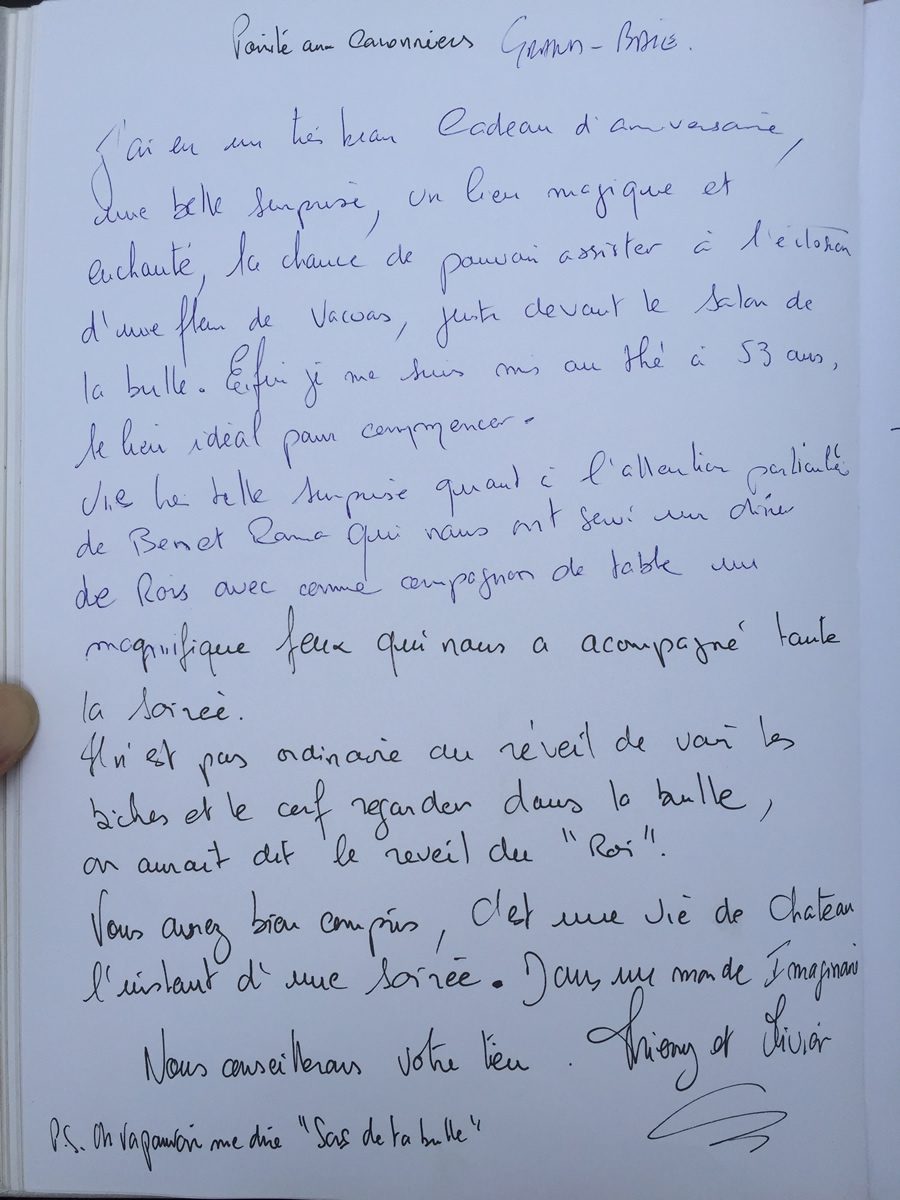 Pointe aux Canonniers GRAND-BAIE.
J'ai eu un très beau Cadeau d'anniversaire,
une belle surprise, un lieu magique et
enchanté, la chance de pouvoir assister à l'éclosion
d'une fleur de Vacoas, juste devant le salon de
la bulle. Enfin je me suis mis au thé à 53 ans,
le lieu idéal pour commencer.
Une très belle surprise quant à l'attention particulière
de Ben et Rama qui nous ont servi un dîner
de Rois avec comme compagnon de table un
magnifique feux qui nous a acompagné toute
la soirée.
Il n'est pas ordinaire au réveil de voir les
biches et le cerf regarder dans la bulle,
on aurait dit le reveil du "Roi".
Vous aurez bien compris, C'est une vie de Chateau
l'instant d'une soirée. Dans un monde Imaginaire
Nous conseillerons votre lieu. Thierry et Olivier
P.S. On va pouvoir me dire "Sors de ta bulle"